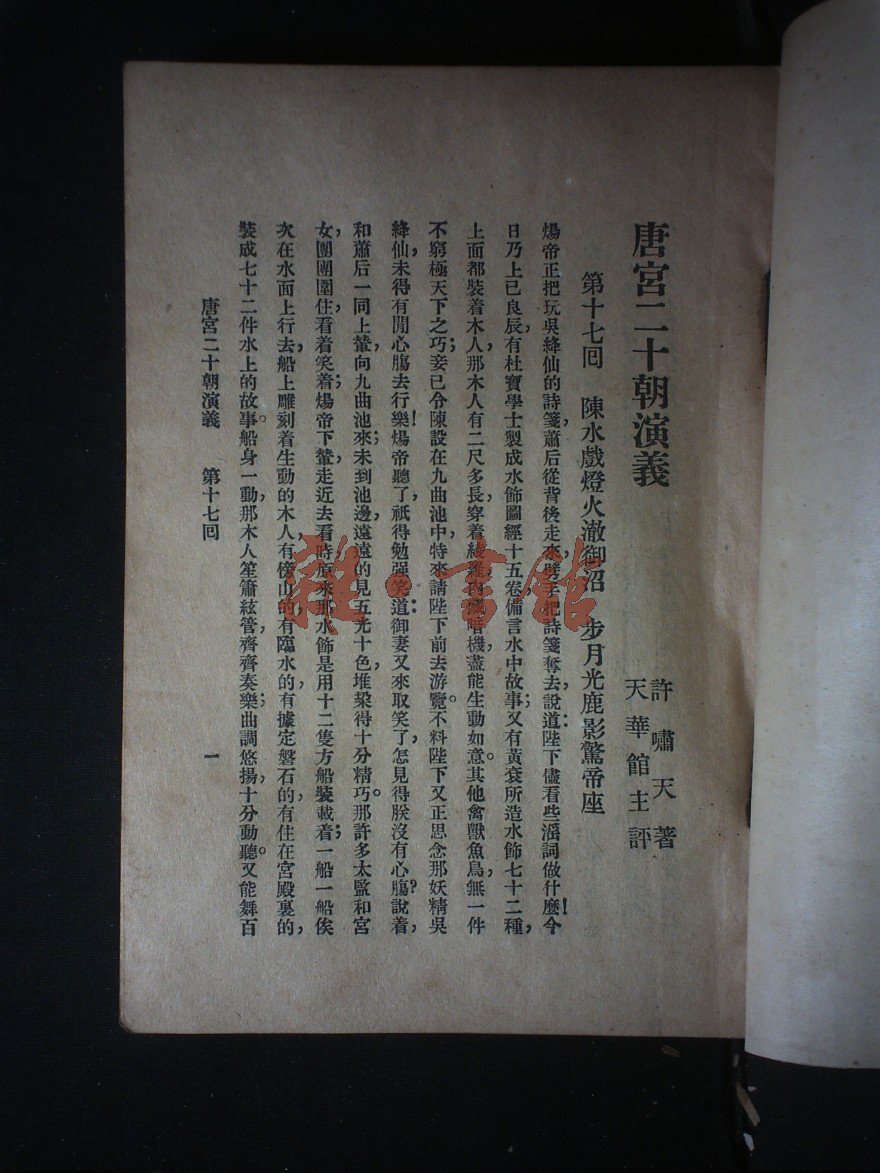 唐宮二十朝演義
許嘯天著
天華館主評
第十七回　陳水戲燈火澈御沼　步月光鹿影驚帝座
煬帝正把玩吳絳仙的詩箋，蕭后從背後走來，劈手把詩箋奪去，說道：陛下儘看些淫詞做什麼！今
日乃上巳良辰，有杜寶學士製成水飾圖經十五卷，備言水中故事；又有黃袞所造水飾七十二種，
上面都裝着木人，那木人有二尺多長，穿着綾羅，內藏暗機，盡能生動如意。其他禽獸魚鳥，無一件
不窮極天下之巧；妾已令陳設在九曲池中，特來請陛下前去游覽。不料陛下又正思念那妖精吳
絳仙，未得有閒心膓去行樂！煬帝聽了，祇得勉强笑道：御妻又來取笑了，怎見得朕沒有心膓？說着，
和蕭后一同上輦，向九曲池來；未到池邊，遠遠的見五光十色，堆垜得十分精巧。那許多太監和宮
女，團團圍住，看着笑着；煬帝下輦，走近去看時，原來那水飾是用十二隻方船裝載着；一船一船俟
次在水面上行去，船上雕刻着生動的木人，有傍山的，有臨水的，有據定磐石的，有住在宮殿裏的，
裝成七十二件水上的故事。船身一動，那木人笙簫絃管，齊齊奏樂；曲調悠揚，十分動聽。又能舞百
唐宮二十朝演義　第十七回　一
雜·書館